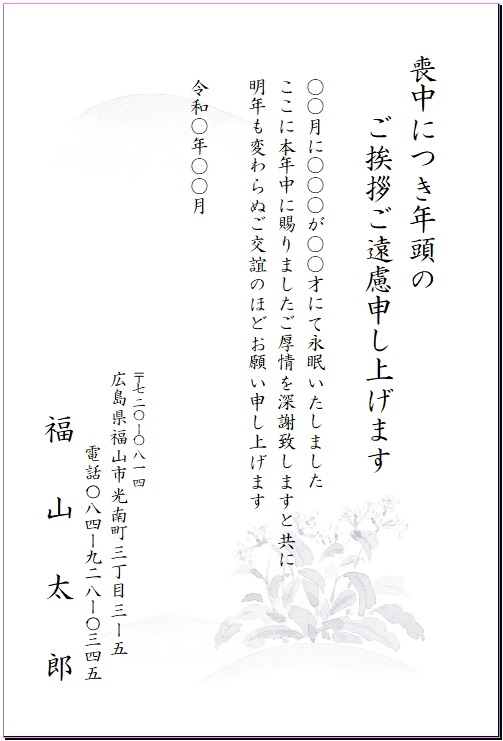 喪中につき年頭の
ご挨拶ご遠慮申し上げます
〇〇月に〇〇〇が〇〇才にて永眠いたしました
ここに本年中に賜りましたご厚情を深謝致しますと共に
明年も変わらぬご交誼のほどお願い申し上げます
令和〇年〇〇月
〒七二〇―〇八一四
広島県福山市光南町三丁目三―五
電話〇八四―九二八―〇三四五
福山太郎